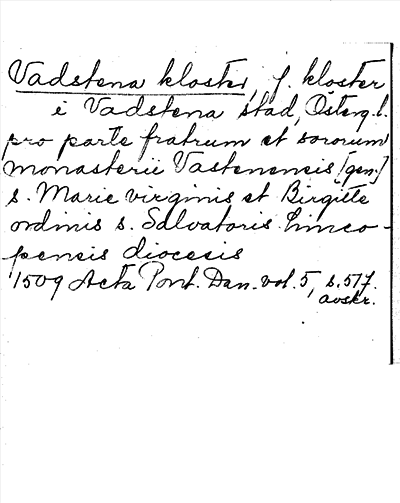 Vadstena kloster, f. kloster
i Vadstena stad, Österg.l.
pro parte fratrum et sororum
monasterii Vastenensis [gen.]
s. Marie virginis et Birgitte
ordinis s. Salvatoris Linco-
pensis diocesis
1509 Acta Pont. Dan. vol. 5, s. 517.
avskr.